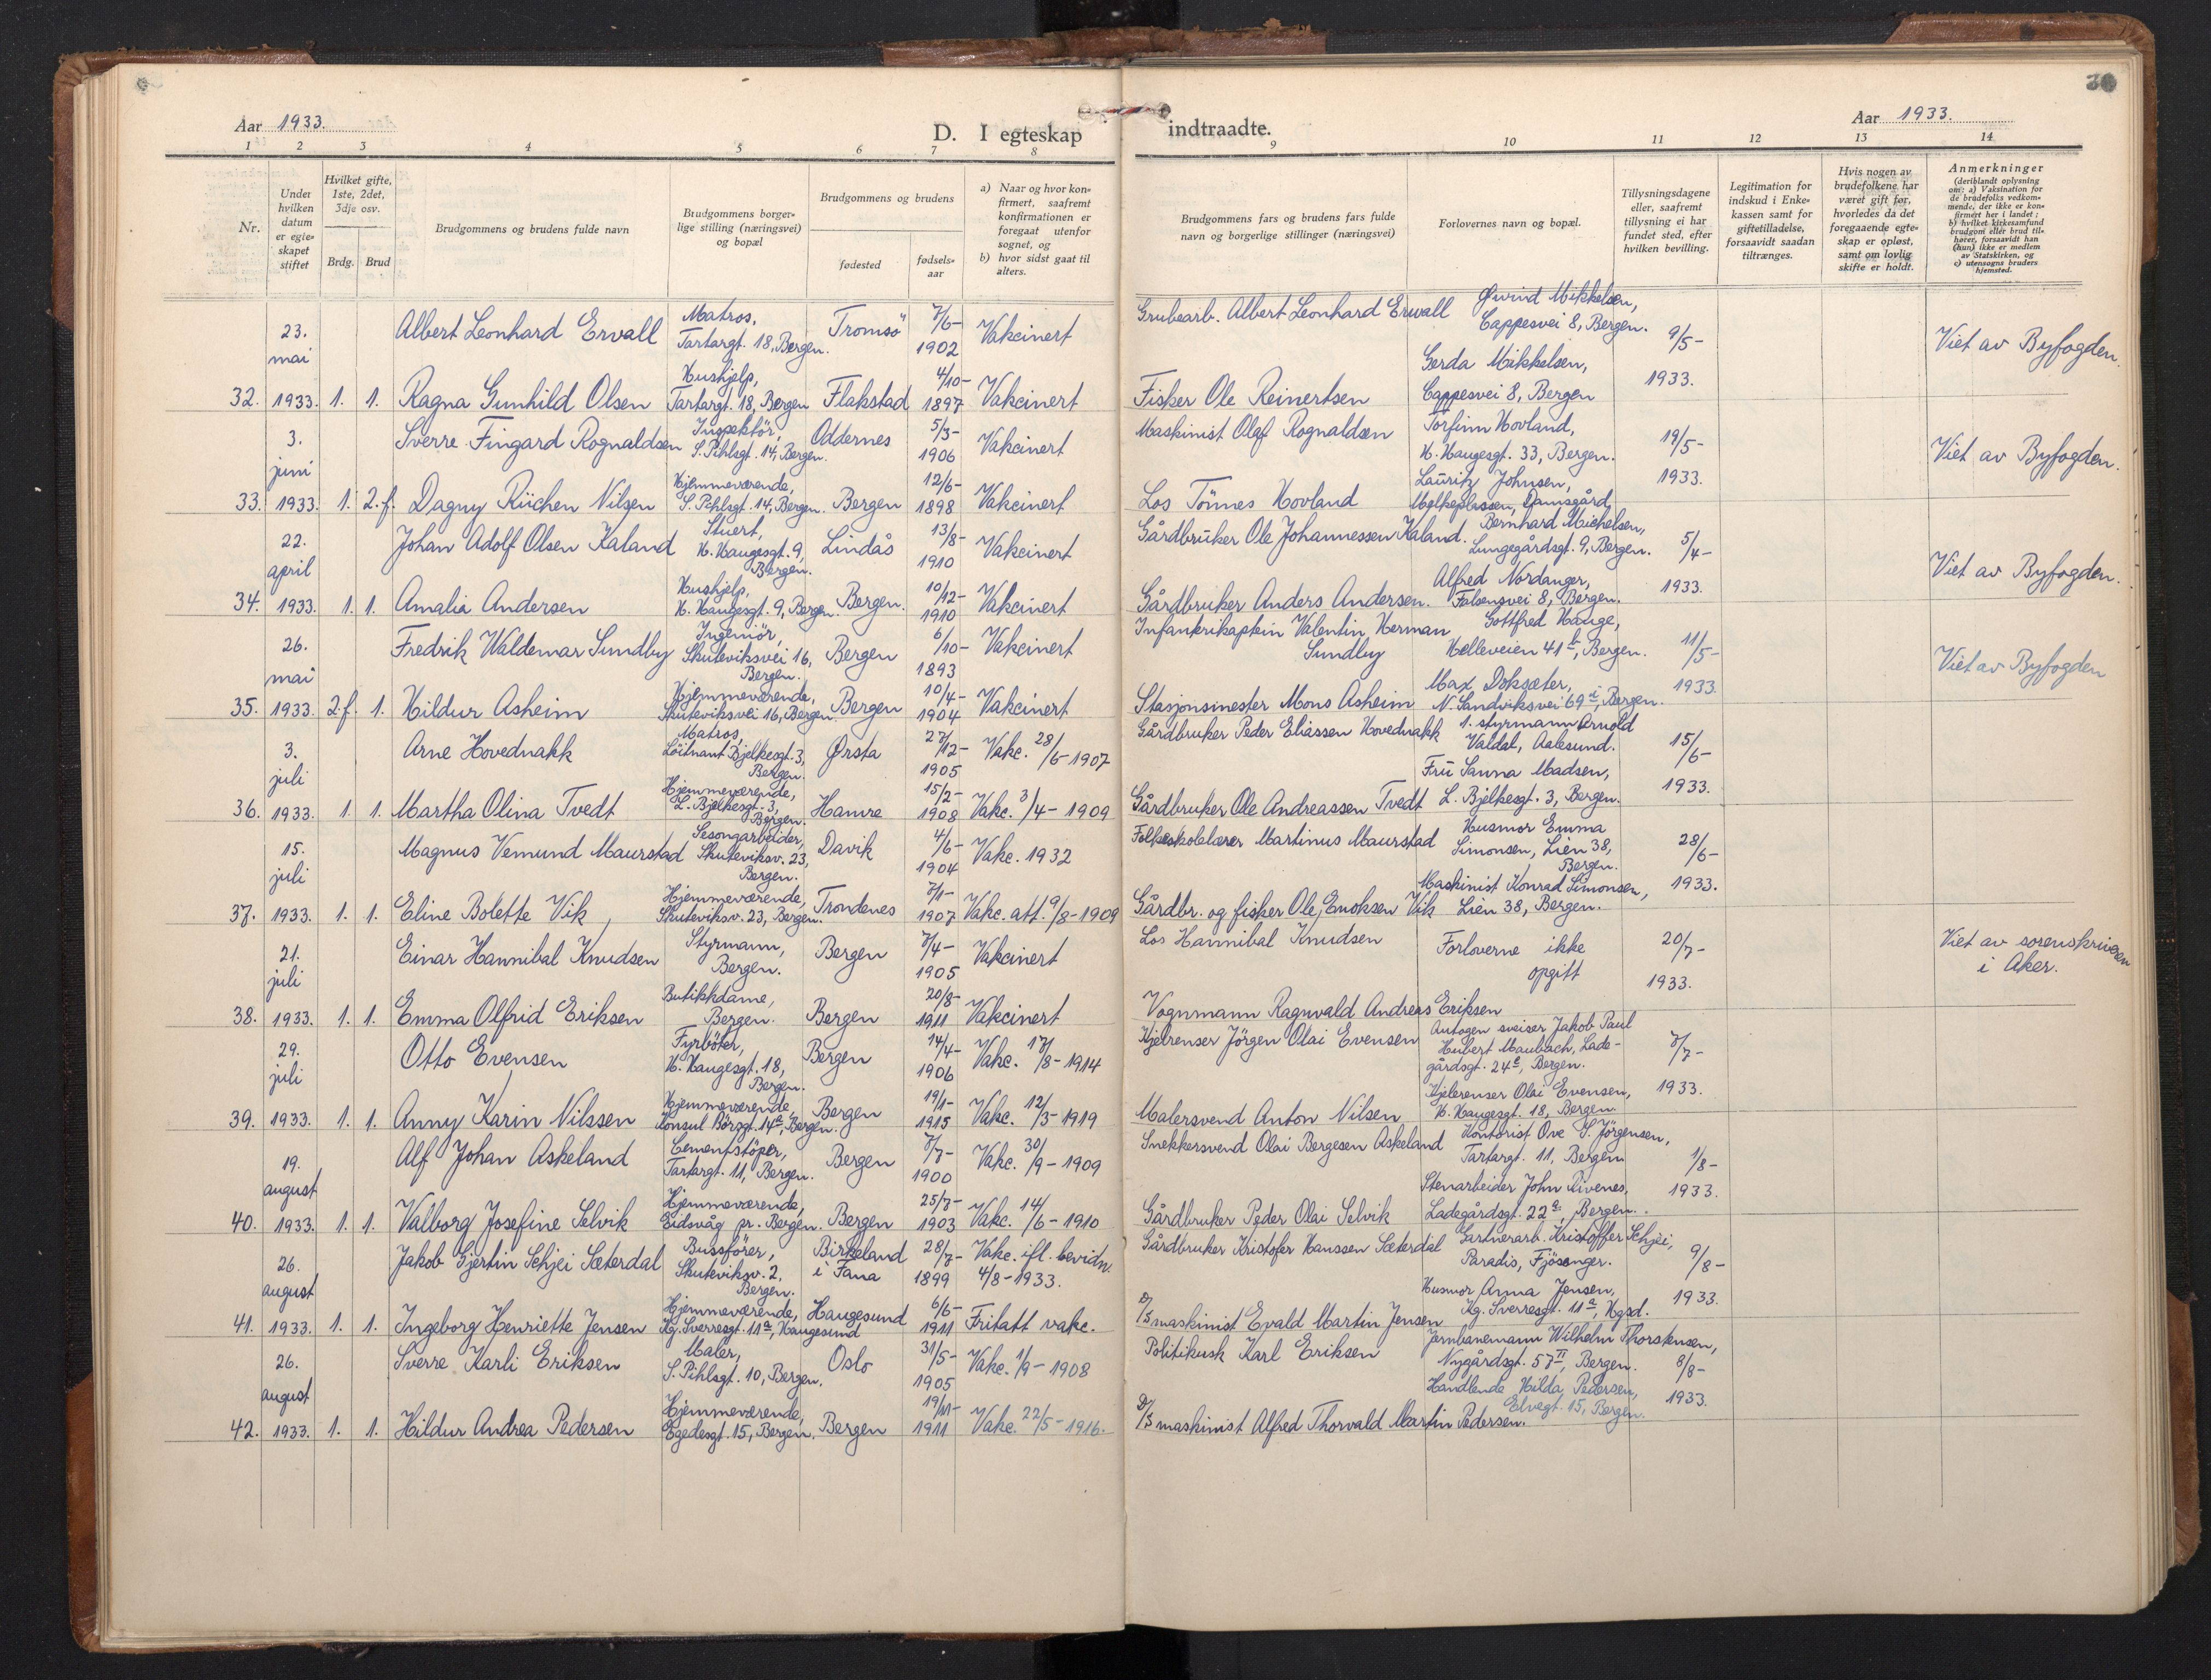 30
Aar 1933.
D. I egteskap indtraadte.
Aar 1933.
1 2 3 4 5 6 7 8 9 10 11 12 13 14
Nr.
Under hvilken datum er egteskapet stiftet
Hvilket gifte, 1ste, 2det, 3dje osv.
Brdg. Brud
Brudgommens og brudens fulde navn
Brudgommens borgerlige stilling (næringsvei) og bopæl
Brudgommens og brudens
fødested
fødselsaar
a) Naar og hvor konfirmert, saafremt konfirmationen er foregaat utenfor sognet, og
b) hvor sidst gaat til alters.
Brudgommens fars og brudens fars fulde navn og borgerlige stillinger (næringsvei)
Forlovernes navn og bopæl.
Tillysningsdagene eller, saafremt tillysning ei har fundet sted, efter hvilken bevilling.
Legitimation for indskud i Enkekassen samt for giftetilladelse, forsaavidt saadan tiltrænges.
Hvis nogen av brudefolkene har været gift før, hvorledes da det foregaaende egteskap er opløst, samt om lovlig skifte er holdt.
Anmerkninger
(deriblandt oplysning om: a) Vaksination for de brudefolks vedkommende, der ikke er konfirmert her i landet; b) hvilket kirkesamfund brudgom eller brud tilhører, forsaavidt han (hun) ikke er medlem av Statskirken, og c) utensogns bruders hjemsted.
23. mai Albert Leonhard Ervall Matros, Tartargt. 18, Bergen. Tromsö 7/6- 1902 Vakcinert Grubearb. Albert Leonhard Erwall Øivind Mikkelsen, Cappesvei 8, Bergen. 9/5- Viet av Byfogden.
32. 1933. 1. 1. Ragna Gunhild Olsen Hushjelp, Tartargt. 18, Bergen Flakstad 4/10- 1897 Vakcinert Fisker Ole Reinertsen Gerda Mikkelsen, Cappesvei 8, Bergen 1933.
3. juni Sverre Fingard Rognaldsen Inspektör, S. Pihlsgt. 14, Bergen. Oddernes 5/3- 1906 Vakcinert Maskinist Olaf Rognaldsen Torfinn Hovland, H. Haugesgt. 33, Bergen. 19/5- Viet av Byfogden.
33. 1933. 1. 2.f. Dagny Rüchen Nilsen Hjemmeværende, S. Pihlsgt. 14, Bergen. Bergen 12/6- 1898 Vakcinert Los Tönnes Hovland Lauritz Johnsen, Melkeplassen, Damsgård 1933.
22. april Johan Adolf Olsen Kaland Stuert, H. Haugesgt. 9, Bergen. Lindås 13/8- 1910 Vakcinert Gårdbruker Ole Johannessen Kaland. Bernhard Michelsen, Lungegårdsgt. 9, Bergen. 5/4- Viet av Byfogden.
34. 1933. 1. 1. Amalia Andersen Hushjelp, H. Haugesgt. 9, Bergen. Bergen. 10/12- 1910 Vakcinert Gårdbruker Anders Andersen. Alfred Nordanger, Falsensvei 8, Bergen. 1933.
26. mai Fredrik Waldemar Sundby Ingeniör, Skuteviksvei 16, Bergen. Bergen 6/10- 1893 Vakcinert Infanterikaptein Valentin Herman Sundby Gottfred Hauge, Helleveien 41b, Bergen. 11/5- Viet av Byfogden
35. 1933. 2.f. 1. Hildur Asheim Hjemmeværende, Skuteviksvei 16, Bergen Bergen 10/4- 1904 Vakcinert Stasjonsmester Mons Asheim Max Doksæter, N. Sandviksvei 69, Bergen. 1933.
3. juli Arne Hovednakk Matros, Löitnant Bjelkesgt. 3, Bergen. Ørsta 27/12- 1905 Vakc. 28/6-1907 Gårdbruker Peder Eliassen Hovednakk 1. styrmann Arnold Valdal, Aalesund. 15/6-
36. 1933. 1. 1. Martha Olina Tvedt Hjemmeværende, L. Bjelkesgt. 3, Bergen. Hamre 15/2- 1908 Vakc. 3/4-1909 Gårdbruker Ole Andreassen Tvedt Fru Sanna Madsen, L. Bjelkesgt. 3, Bergen. 1933.
15. juli Magnus Vemund Maurstad Sesongarbeider, Skuteviksv. 23, Bergen. Davik 4/6- 1904 Vakc. 1932 Folkeskolelærer Martinus Maurstad Husmor Emma Simonsen, Lien 38, Bergen. 28/6-
37. 1933. 1. 1. Eline Bolette Vik Hjemmeværende, Skuteviksv. 23, Bergen. Trondenes 7/1- 1907 Vakc. att. 9/8-1909 Gårdbr. og fisker Ole Enoksen Vik Maskinist Konrad Simonsen, Lien 38, Bergen. 1933.
21. juli Einar Hannibal Knudsen Styrmann, Bergen. Bergen 7/4- 1905 Vakcinert Los Hannibal Knudsen Forloverne ikke opgitt 20/7- Viet av sorenskriveren i Aker.
38. 1933. 1. 1. Emma Olfrid Eriksen Butikkdame, Bergen. Bergen 20/8- 1911 Vakcinert Vognmann Ragnvald Andreas Eriksen 1933.
29. juli Otto Evensen Fyrböter, H. Haugesgt. 18, Bergen. Bergen 14/4- 1906 Vakc. 17/8-1914 Kjelrenser Jörgen Olai Evensen Autogen sveiser Jakob Paul Hubert Maubach, Ladegårdsgt. 24c, Bergen. 7/7-
39. 1933. 1. 1. Anny Karin Nilssen Hjemmeværende, Konsul Börsgt. 14a, Bergen. Bergen 19/1- 1915 Vakc. 12/5-1919 Malersvend Anton Nilsen Kjelerenser Olai Evensen, H. Haugesgt. 18, Bergen 1933.
19. august Alf Johan Askeland Cementstöper, Tartargt. 11, Bergen. Bergen 7/7- 1900 Vakc. 30/9-1909 Snekkersvend Olai Bergesen Askeland Kontorist Ove S. Jörgensen, Tartargt. 11, Bergen 1/8-
40. 1933. 1. 1. Valborg Josefine Selvik Hjemmeværende, Eidsvåg pr. Bergen. Bergen 25/7- 1903 Vakc. 14/6-1910 Gårdbruker Peder Olai Selvik Stenarbeider John Rivenes, Ladegårdsgt. 22a, Bergen. 1933.
26. august Jakob Gjertin Schjei Sæterdal Bussförer, Skuteviksv. 2, Bergen. Birkeland i Fana 28/7- 1899 Vakc. ifl. bevidn. 4/8-1933. Gårdbruker Kristofer Hanssen Sæterdal Gartnerarb. Kristoffer Schjei, Paradis, Fjösanger. 9/8-
41. 1933. 1. 1. Ingeborg Henriette Jensen Hjemmeværende, Kg. Sverresgt. 11a, Haugesund Haugesund 6/6- 1911 Fritatt vakc. D/S maskinist Evald Martin Jensen Husmor Anna Jensen, Kg. Sverresgt. 11a, Hgsd. 1933.
26. august Sverre Karli Eriksen Maler, S. Pihlsgt. 10, Bergen. Oslo 31/5- 1905 Vakc. 1/9-1908 Politikusk Karl Eriksen Jernbanemann Wilhelm Thorstensen, Nygårdsgt. 57II, Bergen. 8/8-
42. 1933. 1. 1. Hildur Andrea Pedersen Hjemmeværende, Egedesgt. 15, Bergen. Bergen 19/11- 1911 Vakc. 22/5-1916. D/S maskinist Alfred Thorvald Martin Pedersen. Handlende Hilda Pedersen, Elvegt. 15, Bergen. 1933.